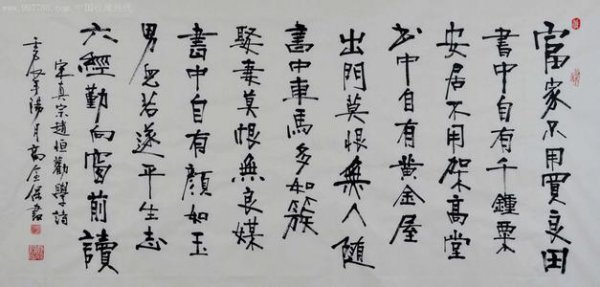 富家不用買良田
書中自有千鍾粟
安居不用架高堂
书中自有黄金屋
出門莫恨無人随
書中車馬多如簇
娶妻莫恨無良媒
書中自有顔如玉
男兒若遂平生志
六經勤向窗前讀
宋真宗趙恒勸學詩
陽月高金
www.997788.com 中国收藏热线